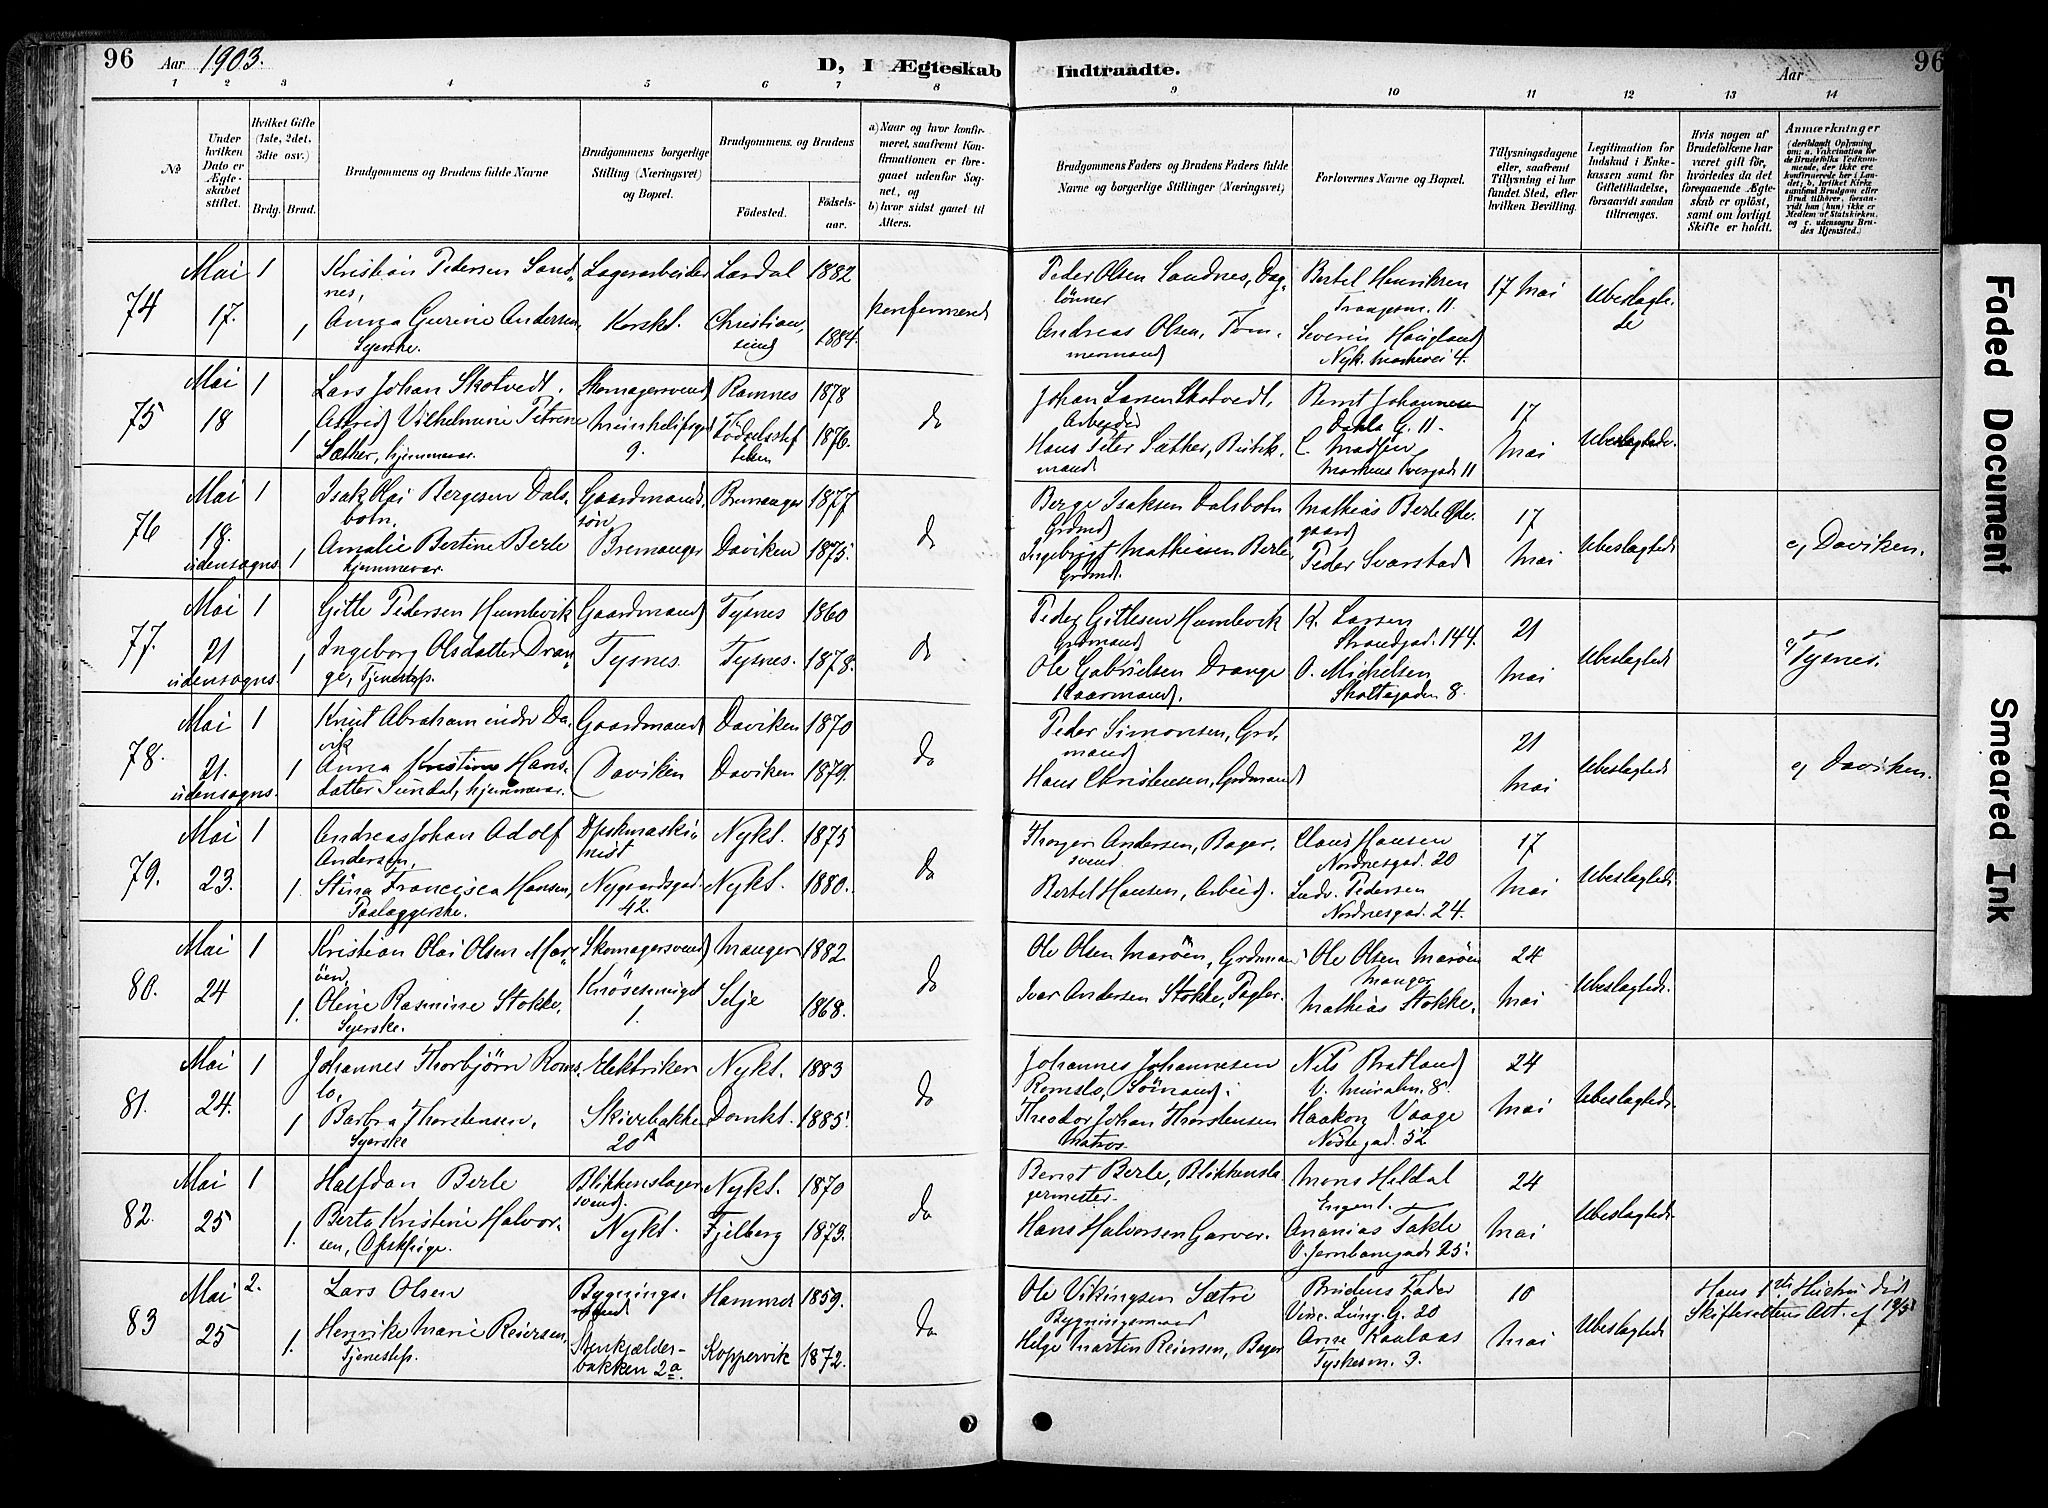 96
Aar 1903.
D, I Ægteskab
Indtraadte.
Aar
96
1 2 3 4 5 6 7 8
9 10 11 12 13 14
No
Under hvilken Dato er Ægteskabet stiftet.
Hvilket Gifte (1ste, 2det, 3die osv.)
Brdg. Brud.
Brudgommens og Brudens fulde Navne
Brudgommens borgerlige Stilling (Næringsvei) og Bopæl.
Brudgommens. og Brudens
Fødested.
Fødselsaar.
a) Naar og hvor konfirmeret, saafremt Konfirmationen er foregaaet udenfor Sognet, og
b) hvor sidst gaaet til Alters.
Brudgommens Faders og Brudens Faders fulde Navne og borgerlige Stillinger (Næringsvei)
Forlovernes Navne og Bopæl.
Tillysningsdagene eller, saafremt Tillysning ei har fundet Sted, efter hvilken Bevilling.
Legitimation for Indskud i Enkekassen samt for Giftetilladelse, forsaavidt saadan tiltrænges.
Hvis nogen af Brudefolkene har været gift før, hvorledes da det foregaaende Ægteskab er opløst, samt om lovligt Skifte er holdt.
Anmærkninger
74
Mai 17.
1
1
Kristian Pedersen Sandnes,
Anna Gurine Andersen,
Syerske.
Lagerarbeider
Korskt.
Lardal
Christiansund
1882
1884.
konfirmered
Peder Olsen Sandnes, Daglönner
Andreas Olsen, Tommermand
Bertel Henriksen
Severin Haugland
Nyk. 4.
17 Mai
Ubeslagtede
75
Mai 18
1
1
Lars Johan Skotvedt.
Astrid Vilhelmine Petrine
Sæther, hjemmevær.
Skomagersvend
9.
Ramnes
1878
1876.
do
Johan Larsen Skotvedt,
Arbeider
Hans Peter Sæther, Butikmand
Bernt Johannesen
C. Madsen
17 Mai
Ubeslagtede
76
Mai 18.
udensogns
1
1
Isak Olai Bergesen Dalsbotn.
Amalie Bertine Berle
hjemmevær.
Gaardmandssøn
Bremanger
Bremanger
Daviken
1877
1875.
do
Berge Isaksen Dalsbotn
Grdmd
Ingebrigt Mathiassen Berle,
Grdmd.
Mathias Berle
Peder Svarstad
17 Mai
Ubeslagtede
c, Daviken.
77.
Mai 21
udensogns.
1
1
Gitle Pedersen Humlevik
Ingeborg Olsdatter Drange,
Tjenestep.
Gaardmand
Tysnes.
Tysnes
Tysnes.
1860
1878.
do
Peder Gitlesen Humlevik
Grdmand
Ole Gabrielsen Drange
Kaarmand.
K. Larsen
Strandgad. 144.
O. Michelsen
Skottegaden 8.
21 Mai
Ubeslagtede
c, Tysnes.
78.
Mai 21.
udensogns.
1
1
Knut Abraham indre Davik
Anna Kristine Hansdatter Sundal, hjemmevær.
Gaardmand
Daviken
Daviken
Daviken
1870
1879.
do
Peder Simonsen, Grdmand
Hans Christensen, Grdmand
21 Mai
Ubeslagtede
c, Daviken.
79.
Mai 23.
1
1.
Andreas Johan Adolf
Andersen,
Stina Francisca Hansen,
Paalæggerske.
Dpskmaskinist
Nygaardsgad.
42.
Nykt.
Nykt.
1875
1880.
do
Thorger Andersen, Bagersvend
Bertel Hansen, Arbeid.
Claus Hansen
Nordnesgad. 20
Ludv. Pedersen
Nordnesgad. 24.
17 Mai
Ubeslagtede
80.
Mai 24
1
1.
Kristian Olai Olsen Marøen,
Oline Rasmine Stokke,
Syerske.
Skomagersvend
Knösesmuget
1.
Manger
Selje
1882
1868.
do
Ole Olsen Marøen, Grdmand
Ivar Andersen Stokke, Fagler.
Ole Olsen Marøen
Manger
Mathias Stokke.
24 Mai
Ubeslagtede
81.
Mai 24.
1
1
Johannes Thorbjörn Romslo,
Barbra Thorstensen,
Syerske
Elektriker
Skivebakken
20 A
Nykt.
Domkt.
1883
1885.
do
Johannes Johannesen
Romslo, Sömand.
Theodor Johan Thorstensen
Matros.
Nils Bratland
V. Muralm. 8.
Haakon Vaage
Nöstegad. 52
24 Mai
Ubeslagtede
82.
Mai 25
1
1.
Halfdan Berle
Berta Kristine Halvorsen, Opskpige.
Blikkenslagersvend.
Nykt.
Nykt.
Fjelberg
1870
1873.
do
Bernt Berle, Blikkenslagermester
Hans Halvorsen Garver.
Mons Heldal
Engent.
Ananias Takle
V. Jernbanegad. 25.
24 Mai
Ubeslagtede
83
Mai 25
2.
1.
Lars Olsen
Henrike Marie Reiersen,
Tjenestep.
Bygningssnedk
Stenkjælderbakken 2a.
Hammer
Koppervik
1859.
1872.
do
Ole Vikingsen Sætre
Bygningsmand
Helge Martin Reiersen, Bager
Brudens Fader
Vinc. Lung. G. 20
Arne Kaalaas
Tyskesm. 3.
10 Mai
Ubeslagtede
Hans 1ste Hustru död
Skifterettens Att. af 19/5
Faded Document
Smeared Ink